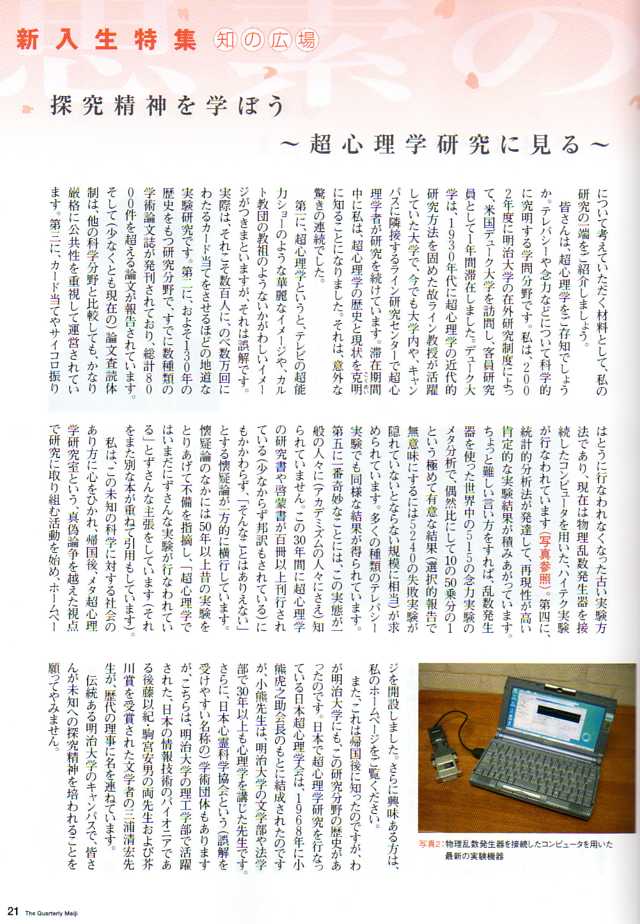 新入生特集 知の広場
探究精神を学ぼう
～超心理学研究に見る～
について考えていただく材料として、私の
研究の一端をご紹介しましょう。
皆さんは、超心理学をご存知でしょう
か。テレパシーや念力などについて科学的
に究明する学問分野です。私は、200
2年度に明治大学の在外研究制度によっ
て、米国デューク大学を訪問し、客員研究
員として1年間滞在しました。デューク大
学は、1930年代に超心理学の近代的
研究方法を固めた故ライン教授が活躍
していた大学で、今でも大学内や、キャン
パスに隣接するライン研究センターで超心
理学者が研究を続けています。滞在期間
中に私は、超心理学の歴史と現状を克明
に知ることになりました。それは、意外な
驚きの連続でした。
第一に、超心理学というと、テレビの超能
力ショーのような華麗なイメージや、カル
ト教団の教祖のようないかがわしいイメー
ジがつきまといますが、それは誤解です。
実際は、それこそ数百人に、のべ数万回に
わたるカード当てをさせるほどの地道な
実験研究です。第二に、およそ130年の
歴史をもつ研究分野で、すでに数種類の
学術論文誌が発刊されており、総計80
00件を超える論文が報告されています。
そして(少なくとも現在の)論文査読体
制は、他の科学分野と比較しても、かなり
厳格に公共性を重視して運営されてい
ます。第三に、カード当てやサイコロ振り
はとうに行なわれなくなった古い実験方
法であり、現在は物理乱数発生器を接
続したコンピュータを用いた、ハイテク実験
が行なわれています(写真参照)。第四に、
統計的分析法が発達して、再現性が高い
肯定的な実験結果が積みあがっています。
ちょっと難しい言い方をすれば、乱数発生
器を使った世界中の515の念力実験の
メタ分析で、偶然比にして10の50乗分の1
という極めて有意な結果(選択的報告で
無意味にするには5240の失敗実験が
隠れていないとならない規模に相当)が求
められています。多くの種類のテレパシー
実験でも同様な結果が得られています。
第五に一番奇妙なことには、この実態が一
般の人々に(アカデミズムの人々にさえ)知
られていません。この30年間に超心理学
の研究書や啓蒙書が百冊以上刊行され
ている(少なからず邦訳もされている)に
もかかわらず、「そんなことはありえない」
とする懐疑論が一方的に横行しています。
懐疑論のなかには50年以上昔の実験を
とりあげて不備を指摘し、「超心理学で
はいまだにずさんな実験が行なわれてい
る」とずさんな主張をしています(それ
をまた別な本が重ねて引用もしています)。
私は、この未知の科学に対する社会の
あり方に心をひかれ、帰国後、メタ超心理
学研究室という、真偽論争を越えた視点
で研究に取り組む活動を始め、ホームペー
ジを開設しました。さらに興味ある方は、
私のホームページをご覧ください。
また、これは帰国後に知ったのですが、わ
が明治大学にも、この研究分野の歴史があ
ったのです。日本で超心理学研究を行なっ
ている日本超心理学会は、1968年に小
熊虎之助会長のもとに結成されたのです
が、小熊先生は、明治大学の文学部や法学
部で30年以上も心理学を講じた先生です。
さらに、日本心霊科学協会という(誤解を
受けやすい名称の)学術団体もあります
が、こちらは、明治大学の理工学部で活躍
された、日本の情報技術のパイオニアであ
る後藤以紀・駒宮安男の両先生および芥
川賞を受賞された文学者の三浦清宏先
生が、歴代の理事に名を連ねています。
伝統ある明治大学のキャンパスで、皆さ
んが未知への探究精神を培われることを
願ってやみません。
写真2：物理乱数発生器を接続したコンピュータを用いた
最新の実験機器
21 The Quarterly Meiji